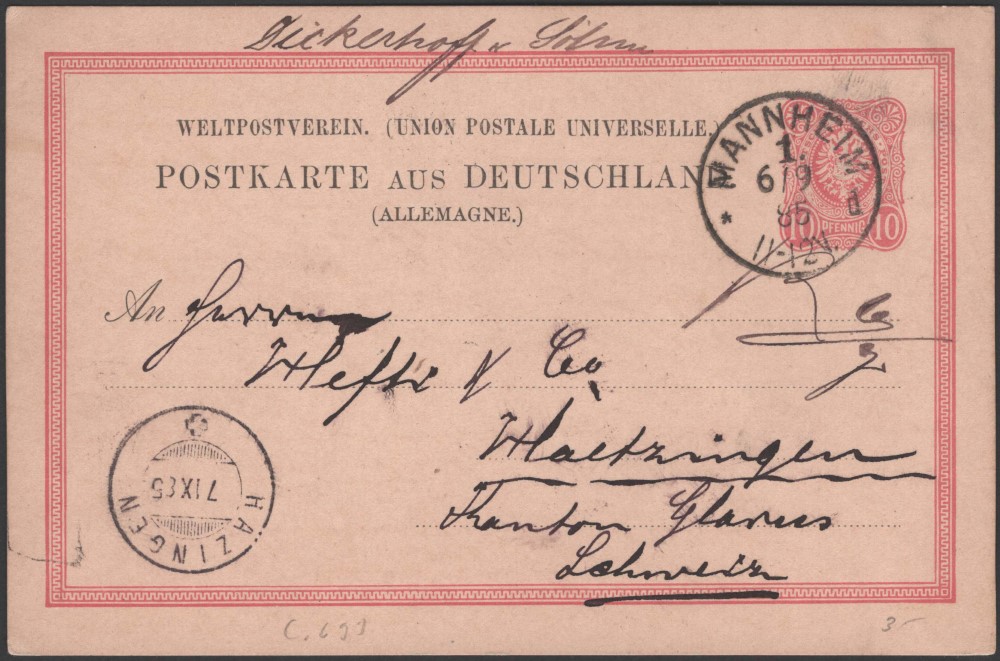 Dickerhoff u Söhne
WELTPOSTVEREIN. (UNION POSTALE UNIVERSELLE.)
POSTKARTE AUS DEUTSCHLAND
(ALLEMAGNE.)
MANNHEIM
1.
6/9
85
11-12V.
* d
10 PFENNIG 10
An Herren
Hefti & Co
Haetzingen
Kanton Glarus
Schweiz
HÄZINGEN
7 IX 85
C. 691
3-